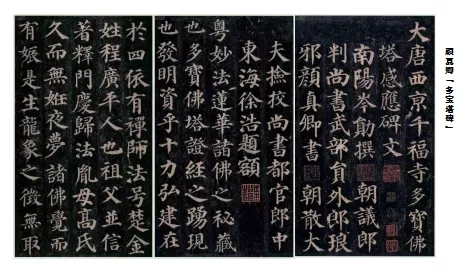 顔真卿「多宝塔碑」
大唐西京千福寺多寶佛
塔感應碑文
南陽岑勛撰 朝議郎
判尚書武部員外郎琅
邪顏真卿書 朝散大
夫撿挍尚書都官郎中
東海徐浩題額
粵妙法蓮華諸佛之秘藏
也多寶佛塔證經之踴現
也發明資乎十力弘建在
於四依有禪師法号楚金
姓程廣平人也祖父並信
著釋門慶歸法胤母高氏
久而無姙夜夢諸佛覺而
有娠是生龍象之徵無取